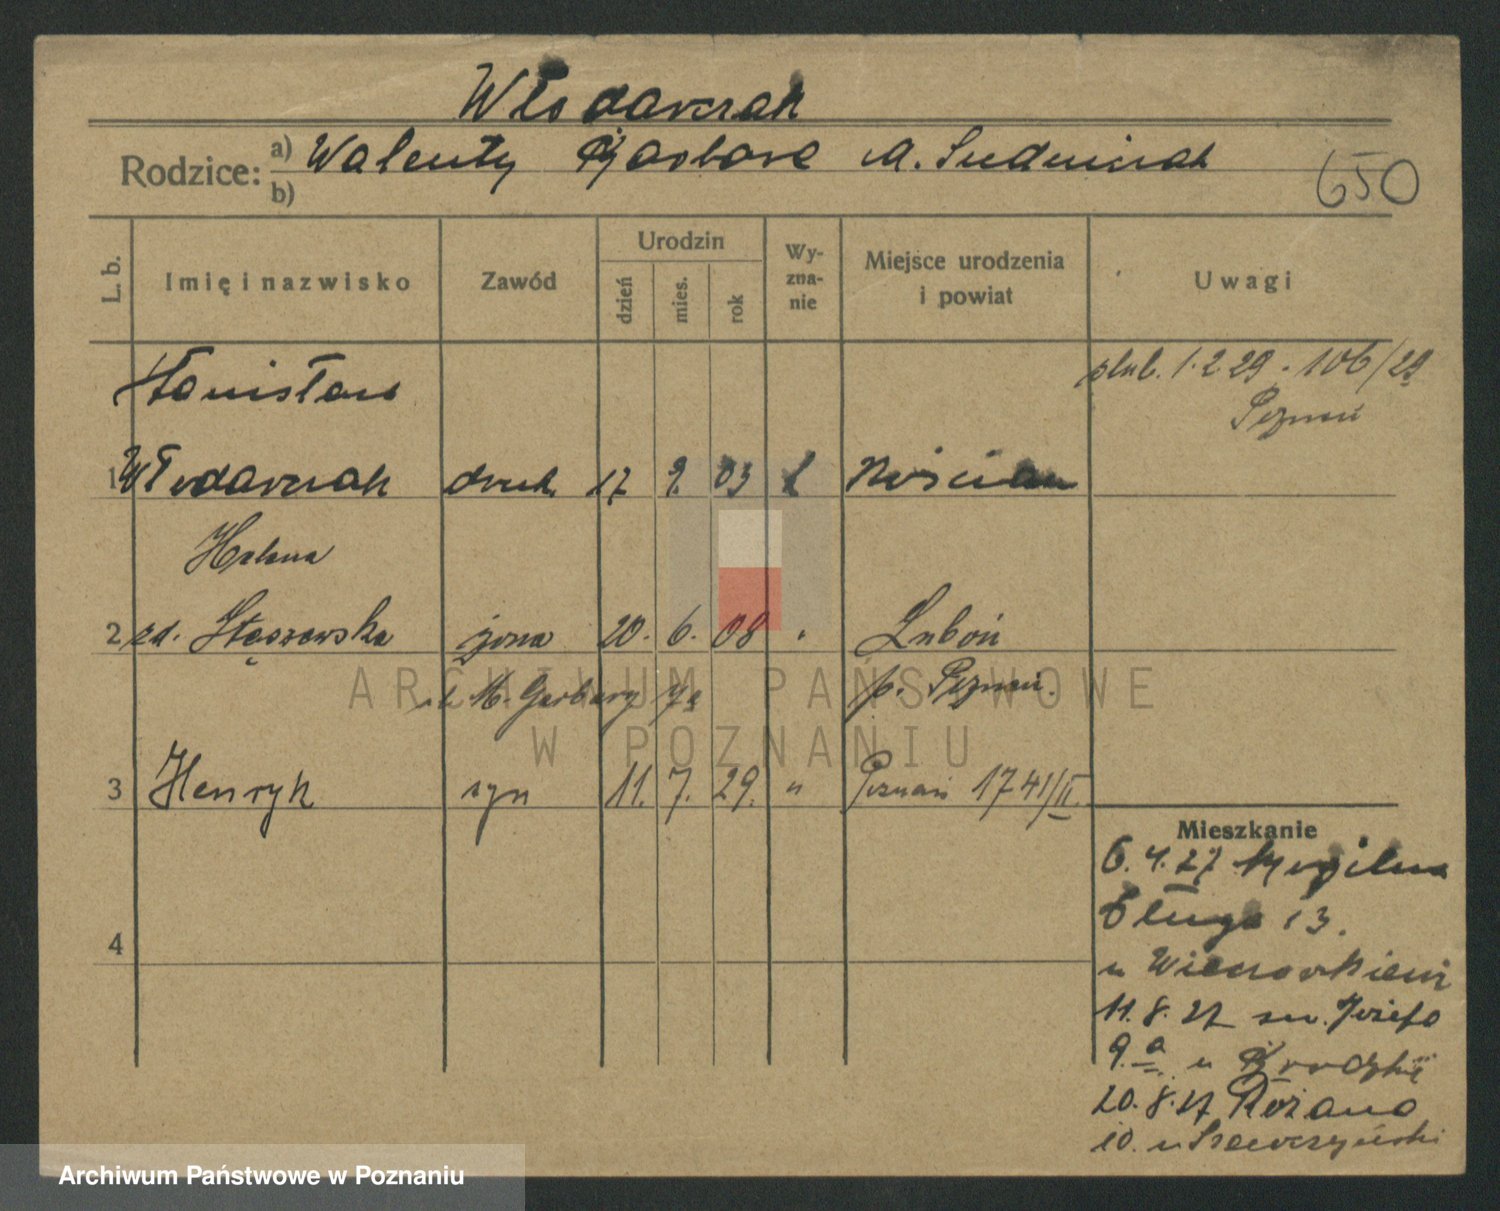 Włodarczak
Rodzice: a) Walenty Barbara
b)
650
L. b.
Imię i nazwisko
Zawód
Urodzin
dzień
mies.
rok
Wy-
zna-
nie
Miejsce urodzenia
i powiat
Uwagi
Stanisław
ślub. 1.2.29. 106/29
Poznań
1 Włodarczak druk. 17 9. 03 k Kościan
Helena
2 zd. Stęszewska żona 20. 6. 08 " Luboń
M. Garbary 7a p. Poznań.
3 Henryk syn 11. 7. 29. " Poznań 1741/II.
Mieszkanie
6.4.27
4
Długa 13.
u
11.8.27 św. Józefa
9.a u
20.8.27 Różana
10. u Szewczyński
ARCHIWUM PAŃSTWOWE
W POZNANIU
Archiwum Państwowe w Poznaniu